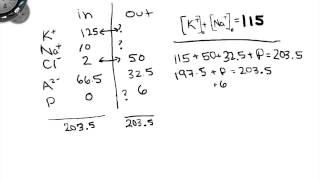 in out
K⁺ 125 ↔ ?
Na⁺ 10 ?
Cl⁻ 2 ↔ 50
A²⁻ 66.5 32.5
P 0 ? 6
203.5 203.5
[K⁺]ₒ + [Na⁺]ₒ = 115
115 + 50 + 32.5 + P = 203.5
197.5 + P = 203.5
+6